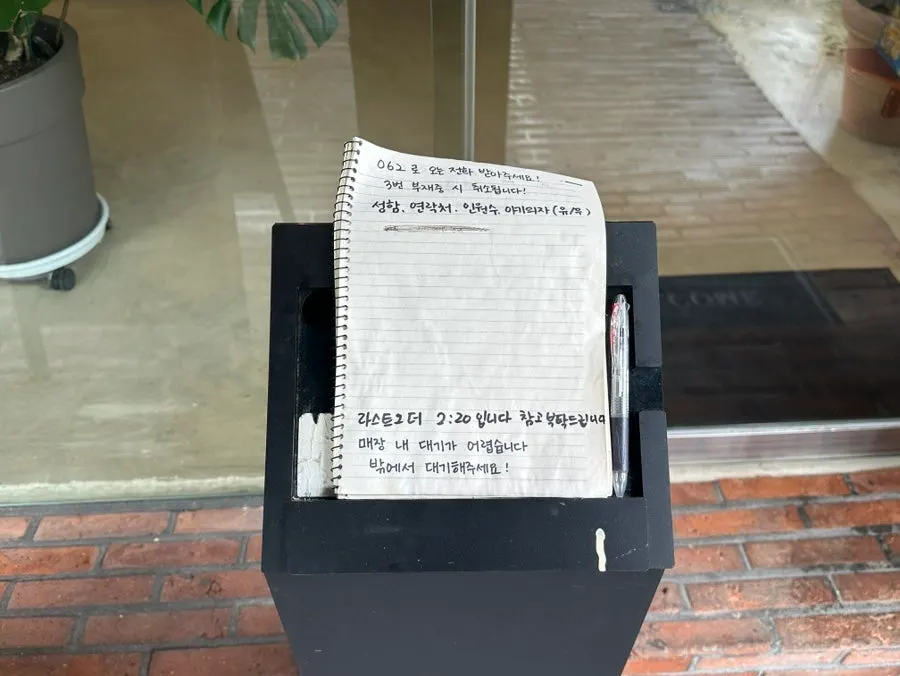 062 로 오는 전화 받아주세요!
3번 부재중 시 취소됩니다!
성함, 연락처, 인원수, 아기의자 (유/무)
라스트오더 2:20 입니다 참고부탁드립니다
매장 내 대기가 어렵습니다
밖에서 대기해주세요!